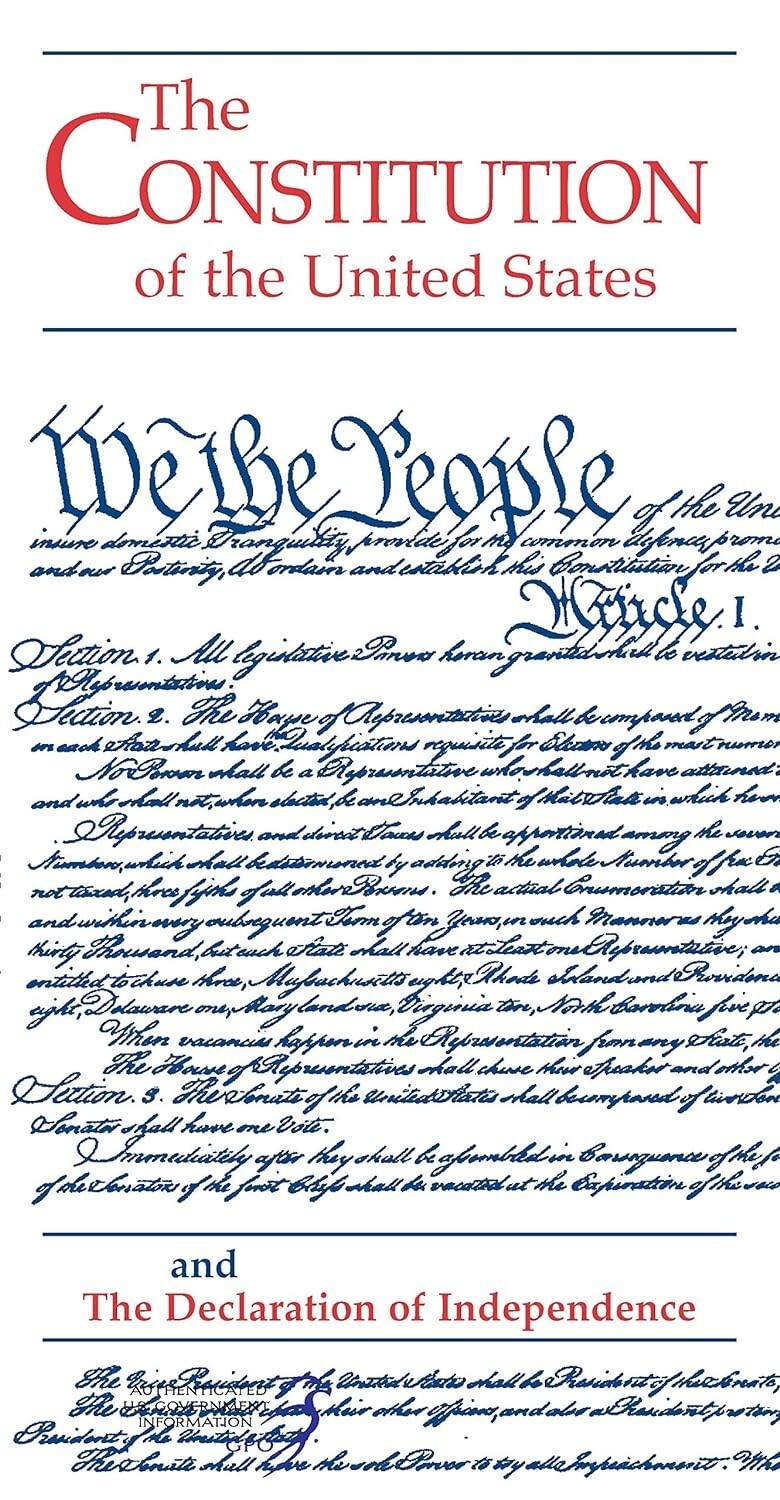 The
CONSTITUTION
of the United States
We the People of the Uni
insure domestic Tranquility, provide for the common defence, promo
and our Posterity, do ordain and establish this Constitution for the U
Article. I.
Section. 1. All legislative Powers herein granted shall be vested in
of Representatives.
Section. 2. The House of Representatives shall be composed of Mem
in each State shall have the Qualifications requisite for Electors of the most numer
No Person shall be a Representative who shall not have attained
and who shall not, when elected, be an Inhabitant of that State in which he
Representatives and direct Taxes shall be apportioned among the sever
Numbers, which shall be determined by adding to the whole Number of free
not taxed, three fifths of all other Persons. The actual Enumeration shall
and within every subsequent Term of ten Years, in such Manner as they sha
thirty Thousand, but each State shall have at Least one Representative; an
entitled to chuse three, Massachusetts eight, Rhode Island and Providen
eight, Delaware one, Maryland six, Virginia ten, North Carolina five
When vacancies happen in the Representation from any State, the
The House of Representatives shall chuse their Speaker and other
Section. 3. The Senate of the United States shall be composed of two Sen
Senator shall have one Vote.
Immediately after they shall be assembled in Consequence of the
of the Senators of the first Class shall be vacated at the Expiration of the
and
The Declaration of Independence
The Vice President of the United States shall be President of the Senate,
The Senate shall chuse their other Officers, and also a President pro tem
President of the United States.
AUTHENTICATED
U.S. GOVERNMENT
INFORMATION
GPO
The Senate shall have the sole Power to try all Impeachments. Wh